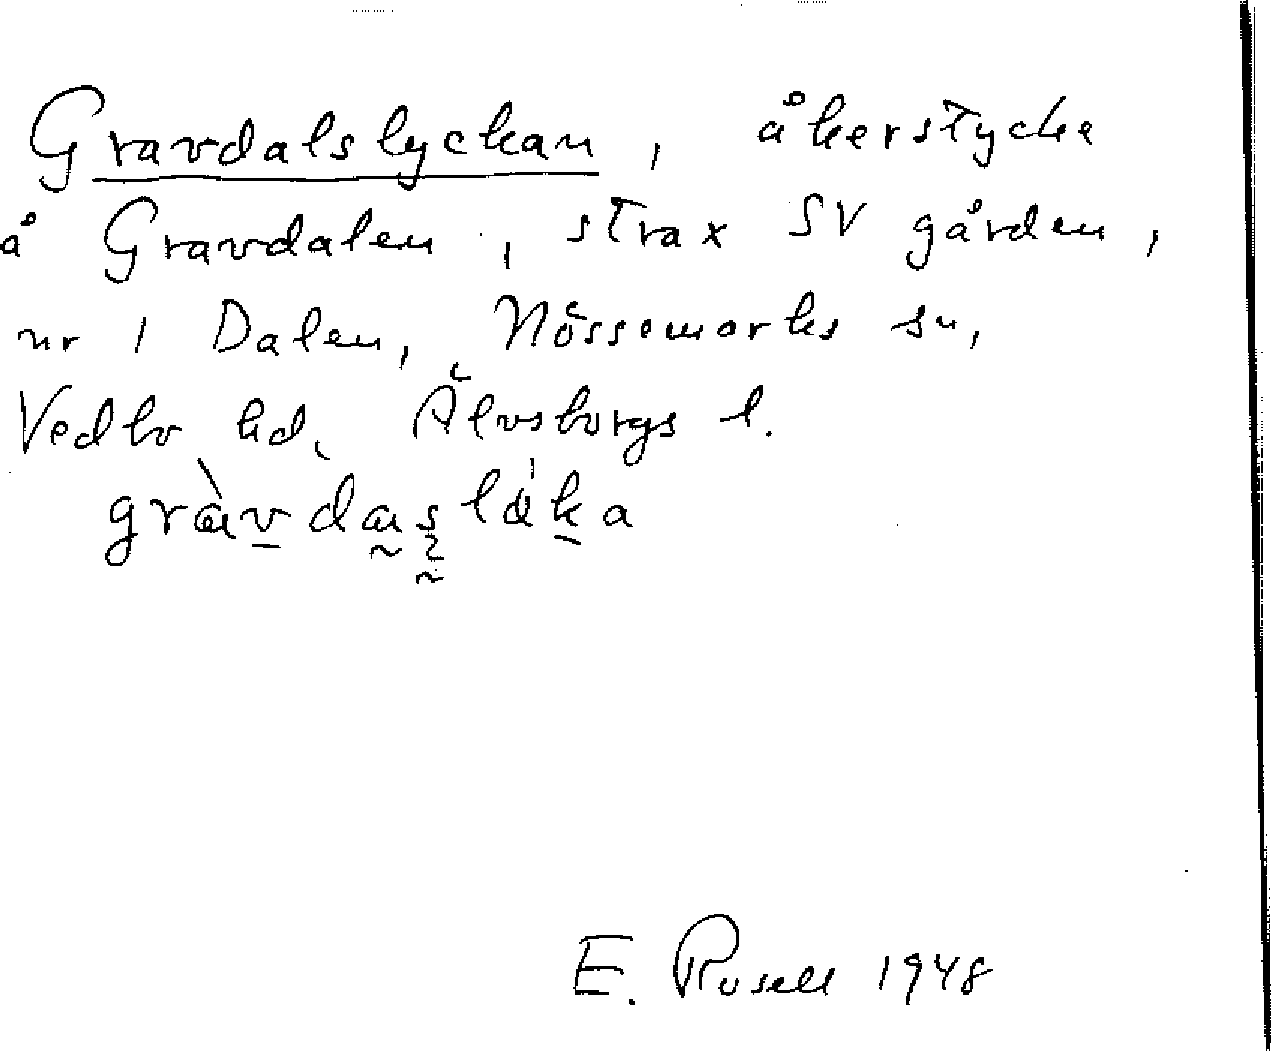 Gravdalslyckan, åkerstycke
å Gravdalen, strax SV gården,
nr 1 Dalen, Nössemarks sn,
Vedbo hd, Älvsborgs l.
E. Rusell 1948